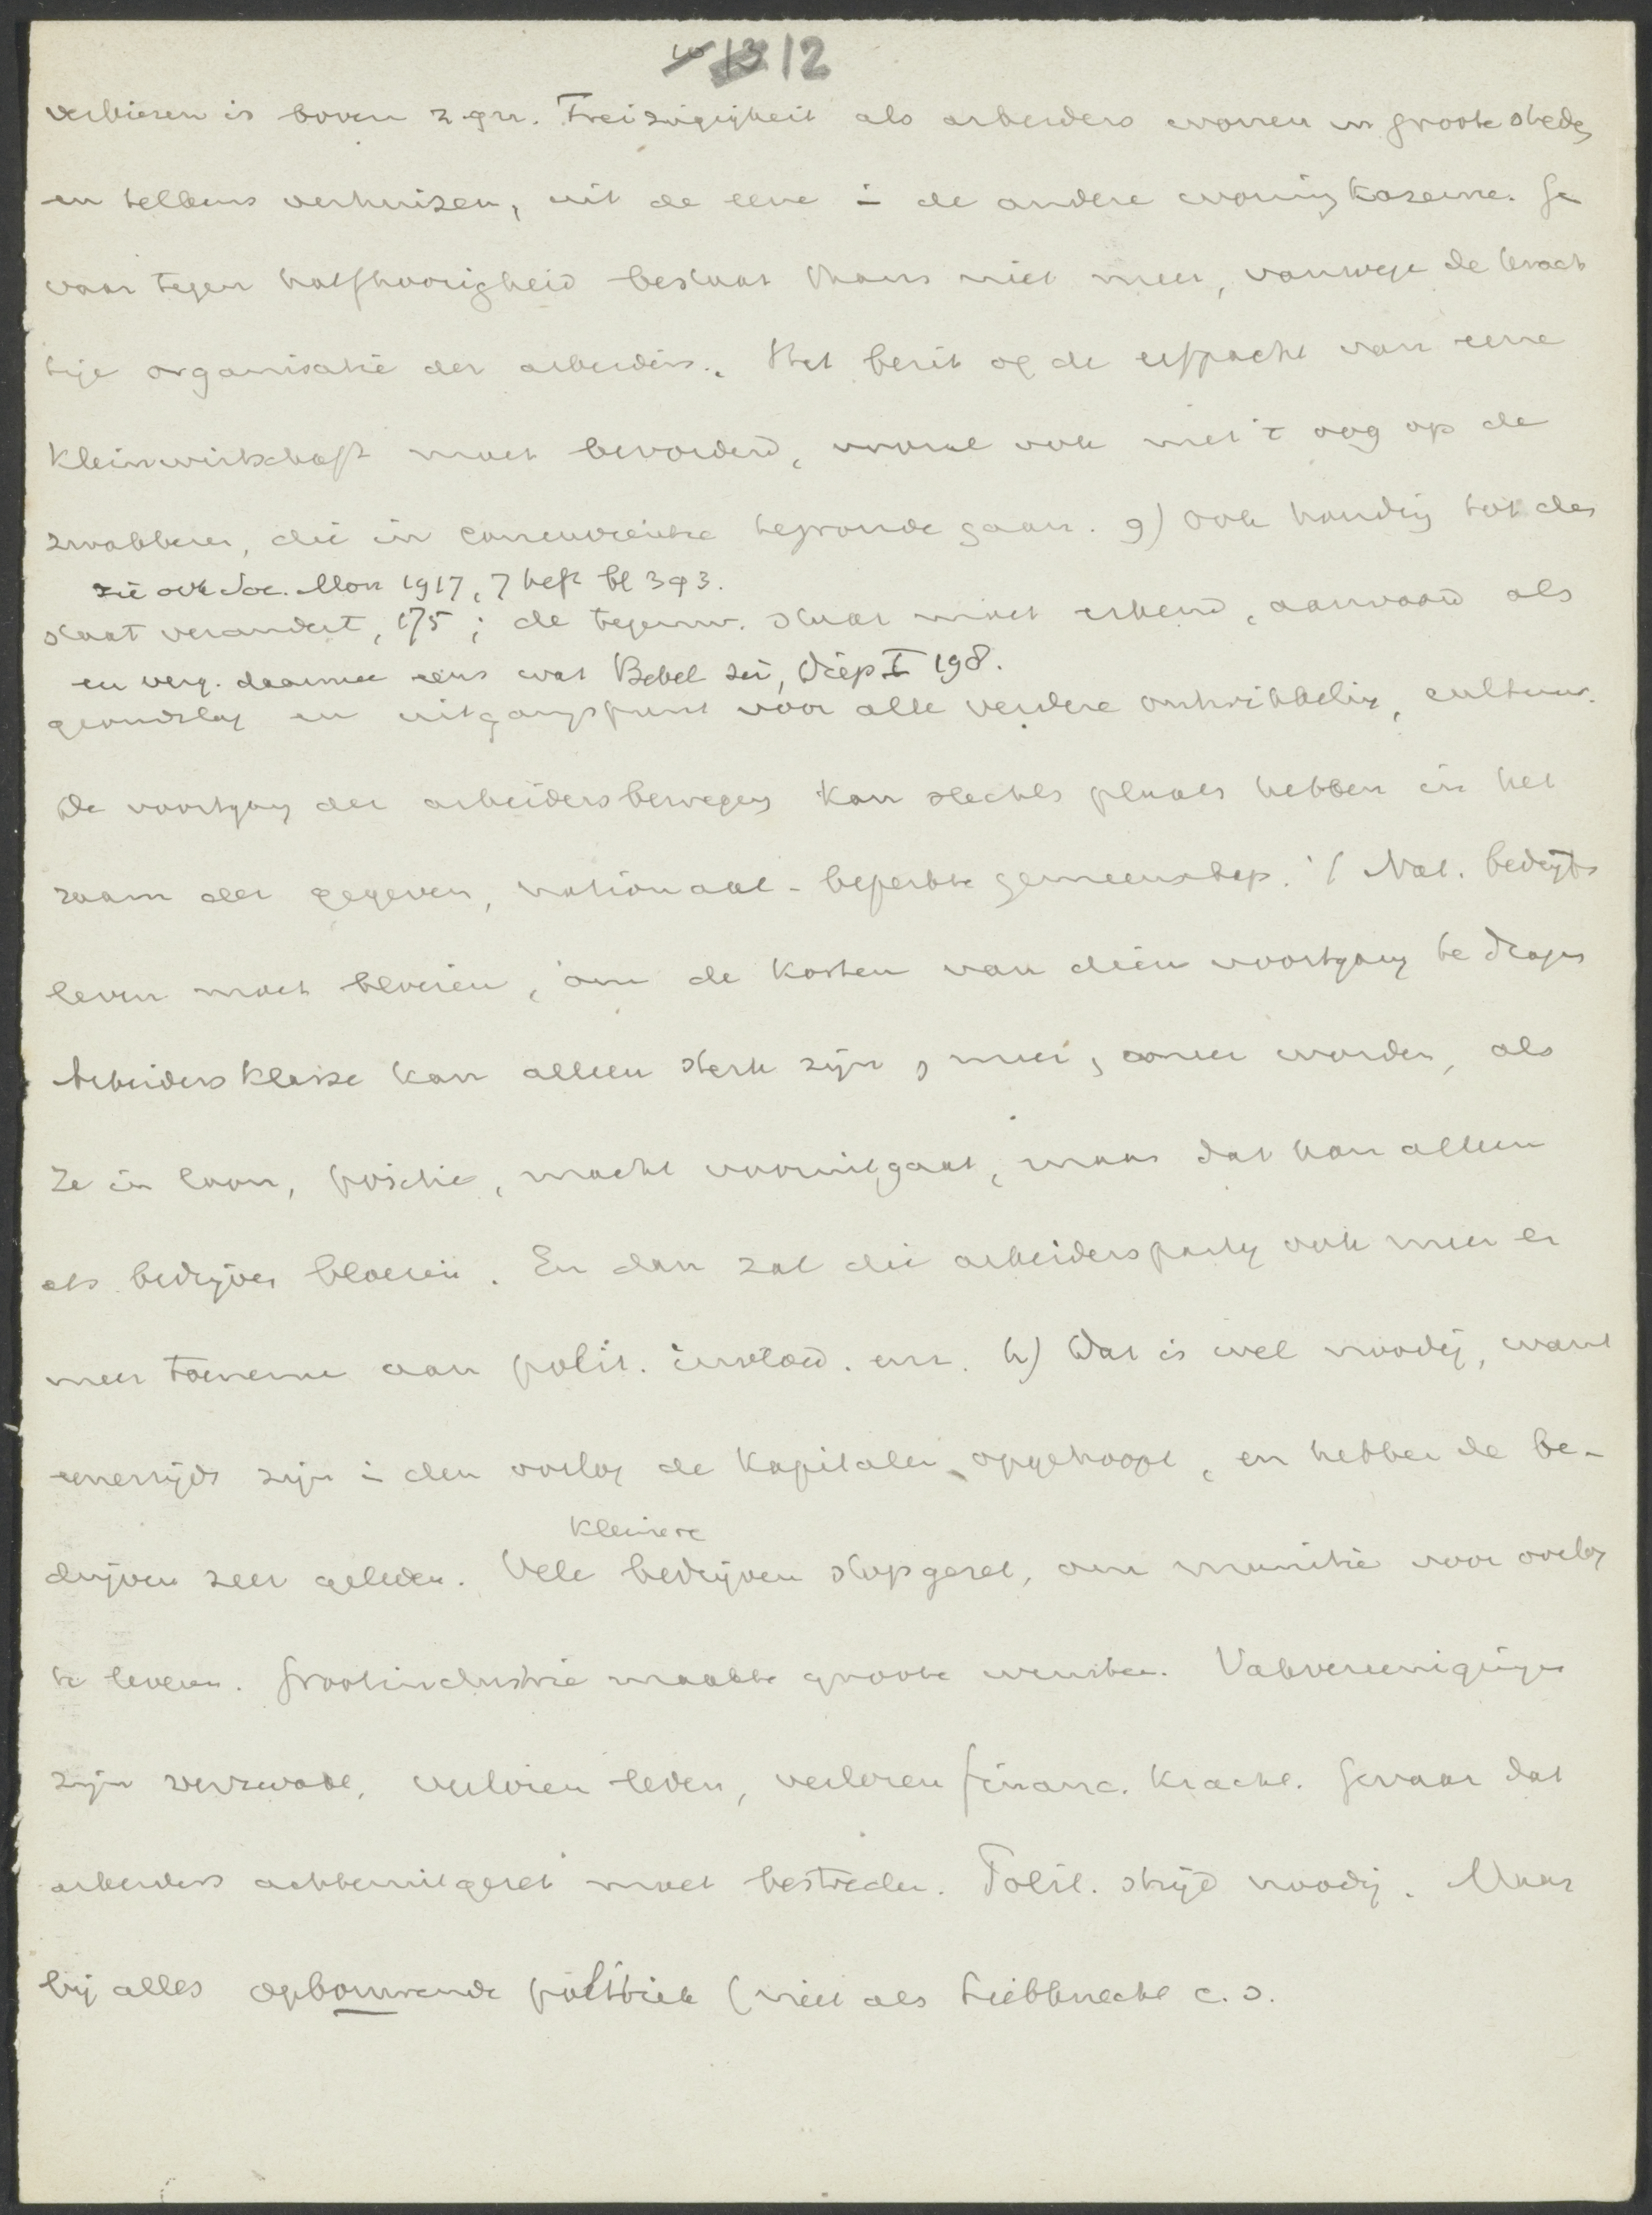 12
verkiezen is boven z.gn. Freizügigkeit als arbeiders wonen in groote steden
en telkens verhuizen, uit de eene in de andere woningkazerne. Ge
vaar tegen halfhoorigheid bestaat thans niet meer, vanwege de krach
tige organisatie der arbeiders. Het bezit op de erfpacht van eene
Kleinwirtschaft moet bevorderd, vooral ook met 't oog op de
zwakkeren, die in concurrentie te gronde gaan. g) ook houding tot den
zie ook Soc. Mon 1917, 7 heft bl 393.
staat verandert, 175; de tegenw. staat moet erkend, aanvaard als
en verg. daarmee eens wat Bebel zei, Diep I 198.
grondslag en uitgangspunt voor alle verdere ontwikkeling, cultuur.
De voortgang der arbeidersbeweging kan slechts plaats hebben in het
raam der gegeven, nationaal-beperkte gemeenschap. Nat. bedrijfs
leven moet bloeien, om de kosten van dien voortgang te dragen
Arbeidersklasse kan alleen sterk zijn, meer, worden, als
ze in loon, positie, macht vooruitgaat, maar dat kan alleen
als bedrijven bloeien. En dan zal die arbeiderspartij ook meer en
meer toenemen aan polit. invloed. enz. h) Dat is wel noodig, want
eenerzijds zijn in den oorlog de kapitalen opgehoopt, en hebben de be-
kleinere
drijven zeer geleden. Vele bedrijven stopgezet, om munitie voor oorlog
te leveren. Grootindustrie maakte groote winsten. Vakvereenigingen
zijn verzwakt, verloren leden, verloren financ. kracht. Gevaar dat
arbeiders achteruitgezet moet bestreden. Polit. strijd noodig. Maar
bij alles opbouwende politiek (niet als Liebknecht c.s.